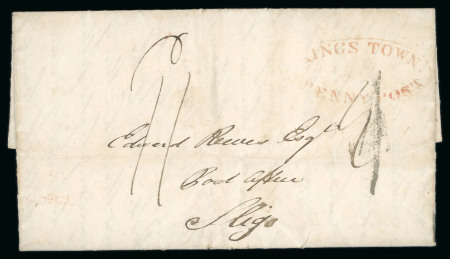 KINGS TOWN
PENNY POST
11
4
Edward Reeves Esqr
Post Office
Sligo